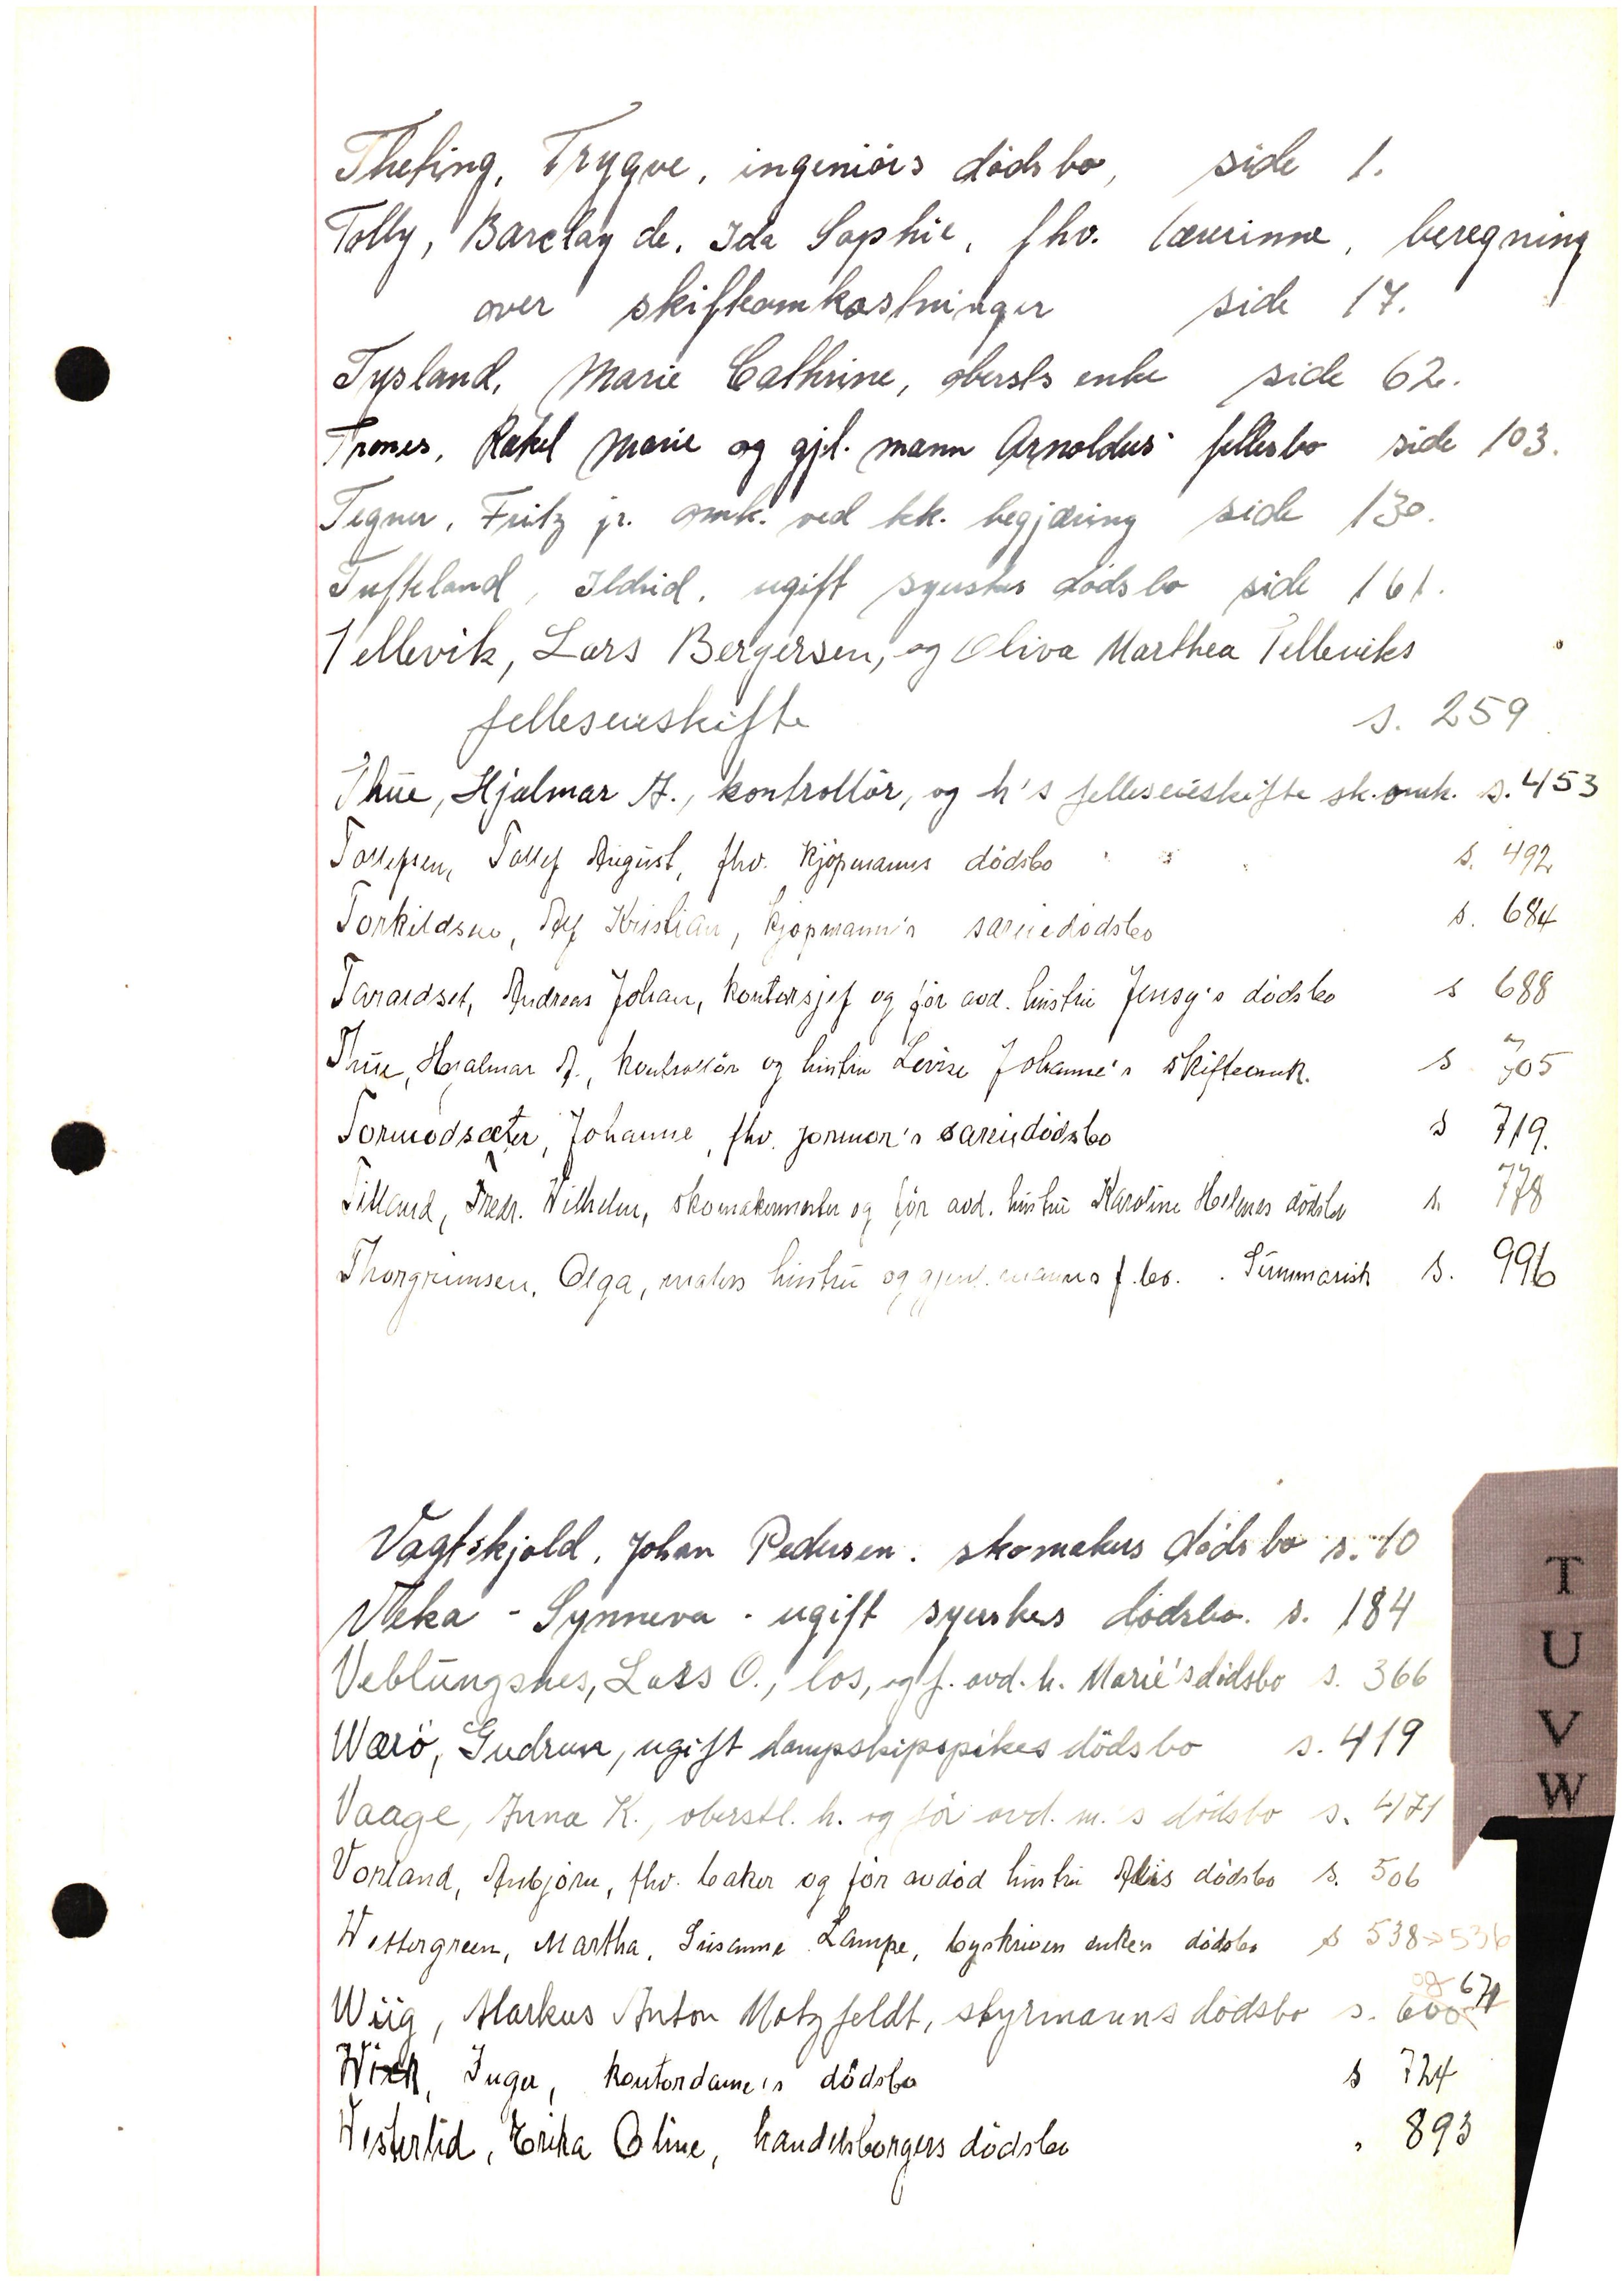 Thesing, Trygve, ingeniörs dödsbo, side 1.
Tolly, Barclay de, Ida Sophie, fhv. lærerinne, beregning
over skifteomkostninger side 17.
Tysland, Marie Cathrine, obersts enke side 62.
Trones, Rakel Marie og gjl. mann Arnoldus' fellesbo side 103.
Tegner, Fritz jr. omk. ved kk. begjæring side 130.
Tufteland, Ildrid, ugift syerskes dödsbo side 161.
Tellevik, Lars Bergersen, og Oliva Marthea Telleviks
felleseieskifte s. 259
Thue, Hjalmar A., kontrollör, og h's felleseieskifte sk.omk. s. 453
Tollefsen, Tollef August, fhv. kjöpmanns dödsbo s. 492
Torkildsen, Alf Kristian, kjöpmann's særeiedödsbo s. 684
Taraldset, Andreas Johan, kontorsjef og för avd. hustru Jensy's dödsbo s 688
Thue, Hjalmar A., kontrollör og hustru Lovise Johanne's skifteomk. s 705
Tormodsæter, Johanne, fhv. jormor's særeiedödsbo s 719.
Tilland, Fredr. Wilhelm, skomakermester og för avd. hustru Karoline Helenes dödsbo s. 778
Thorgrimsen, Olga, malers hustru og gjenl. manns f.bo. Summarisk s. 996
Vagtskjold, Johan Pedersen. skomakers dödsbo s. 10
Veka - Synneva - ugift syerskes dödsbo. s. 184
Veblungsnes, Lars O., los, og f. avd. h. Marie's dödsbo s. 366
Wærö, Gudrun, ugift dampskipspikes dödsbo s. 419
Vaage, Anna K., oberstl. h. og för avd. m.'s dödsbo s. 471
Vorland, Anbjörn, fhv. baker og för avdöd hustru Alis dödsbo s. 506
Westergreen, Martha, Susanne Lampe, byskriver enkes dödsbo s 538 536
Wiig, Markus Anton Motzfeldt, styrmanns dödsbo s. 600 og 674
Wick, Inger, kontordame's dödsbo s 724
Westerlid, Erika Oline, handelsborgers dödsbo " 893
T
U
V
W